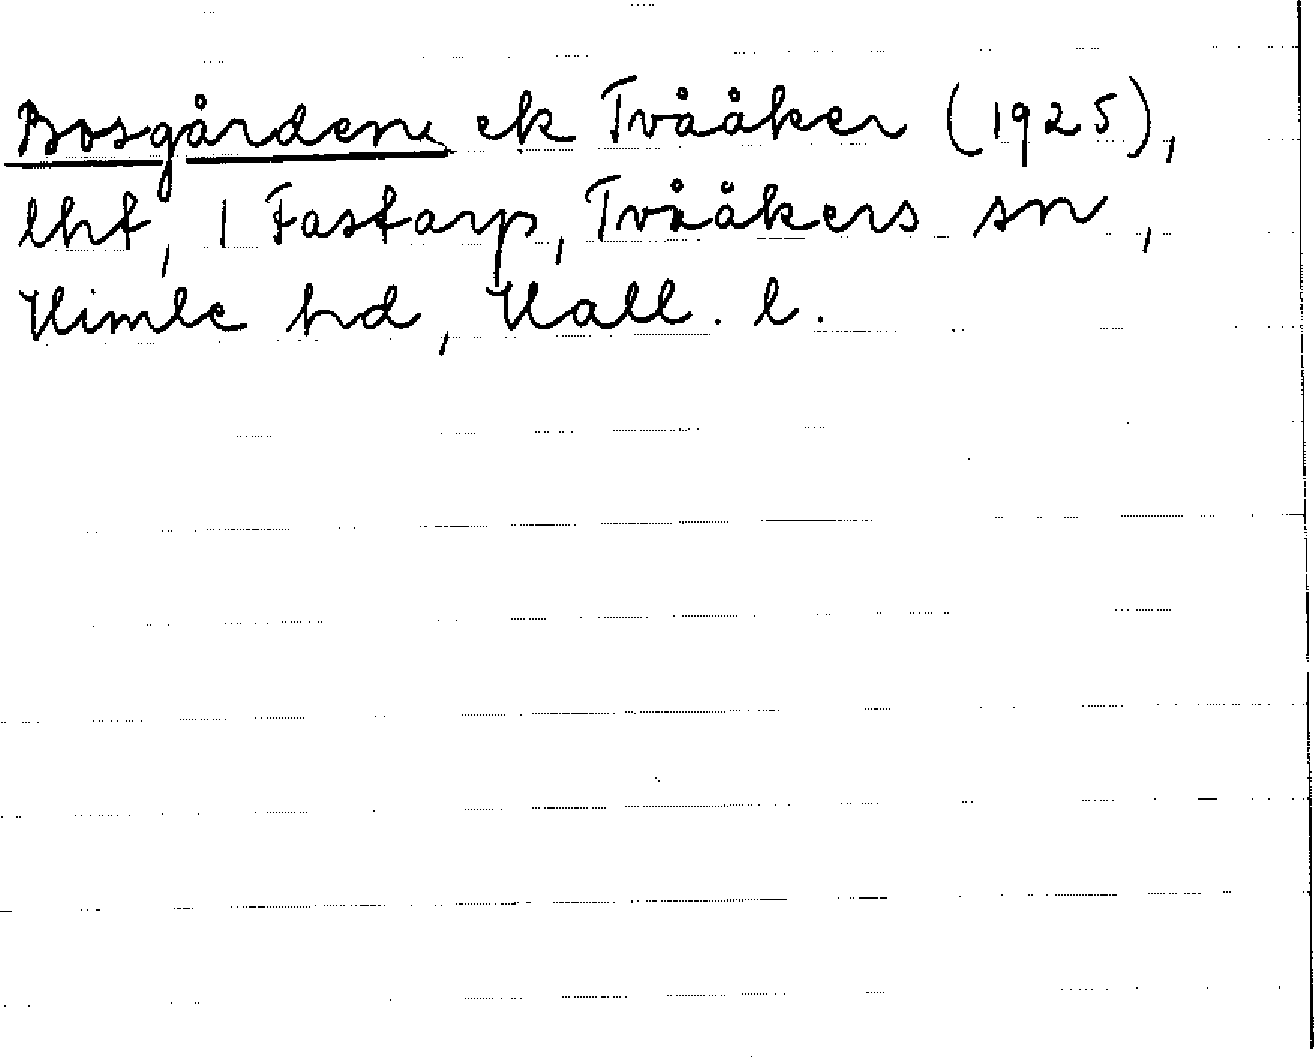 Bosgården ek Tvååker (1925),
lht, 1 Fastarp, Tvååkers sn,
Himle hd, Hall. l.